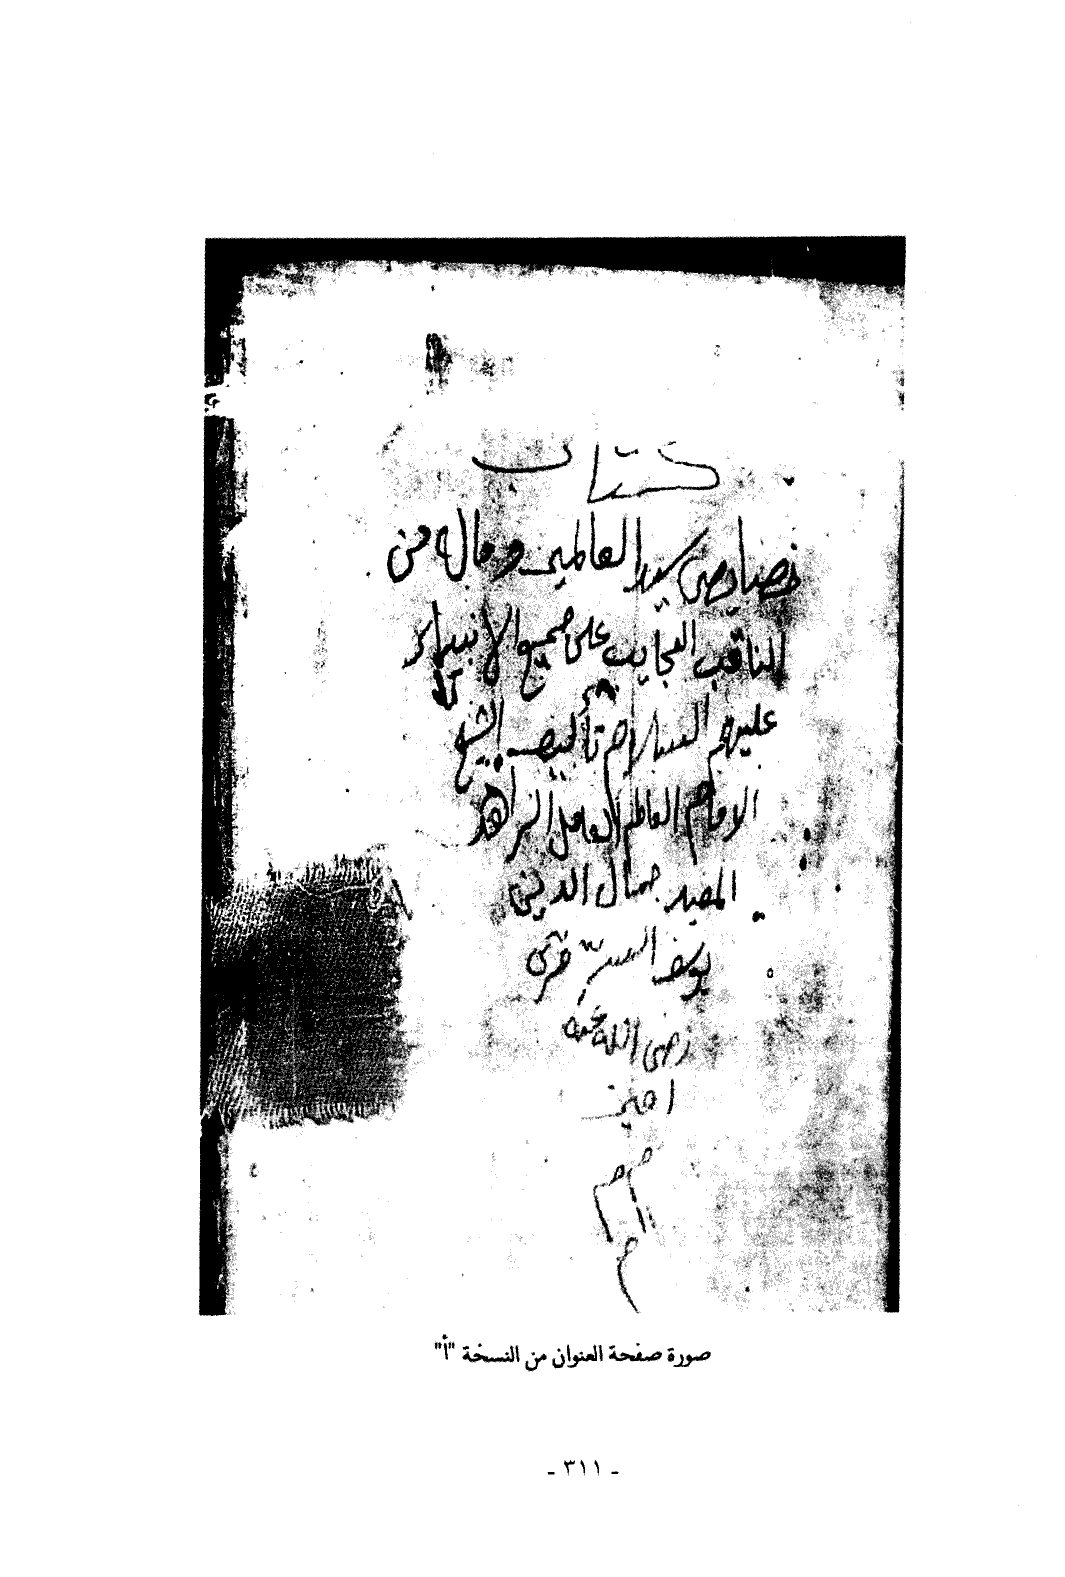 كتاب
خصايص سيد العالمين وماله من
المناقب العجايب على جميع الانبياء
عليهم السلام تأليف الشيخ
الامام العالم العامل الزاهد
المفيد جمال الدين
يوسف السرمري
رضى الله عنه
امين
صورة صفحة العنوان من النسخة "أ"
- ٣١١ -